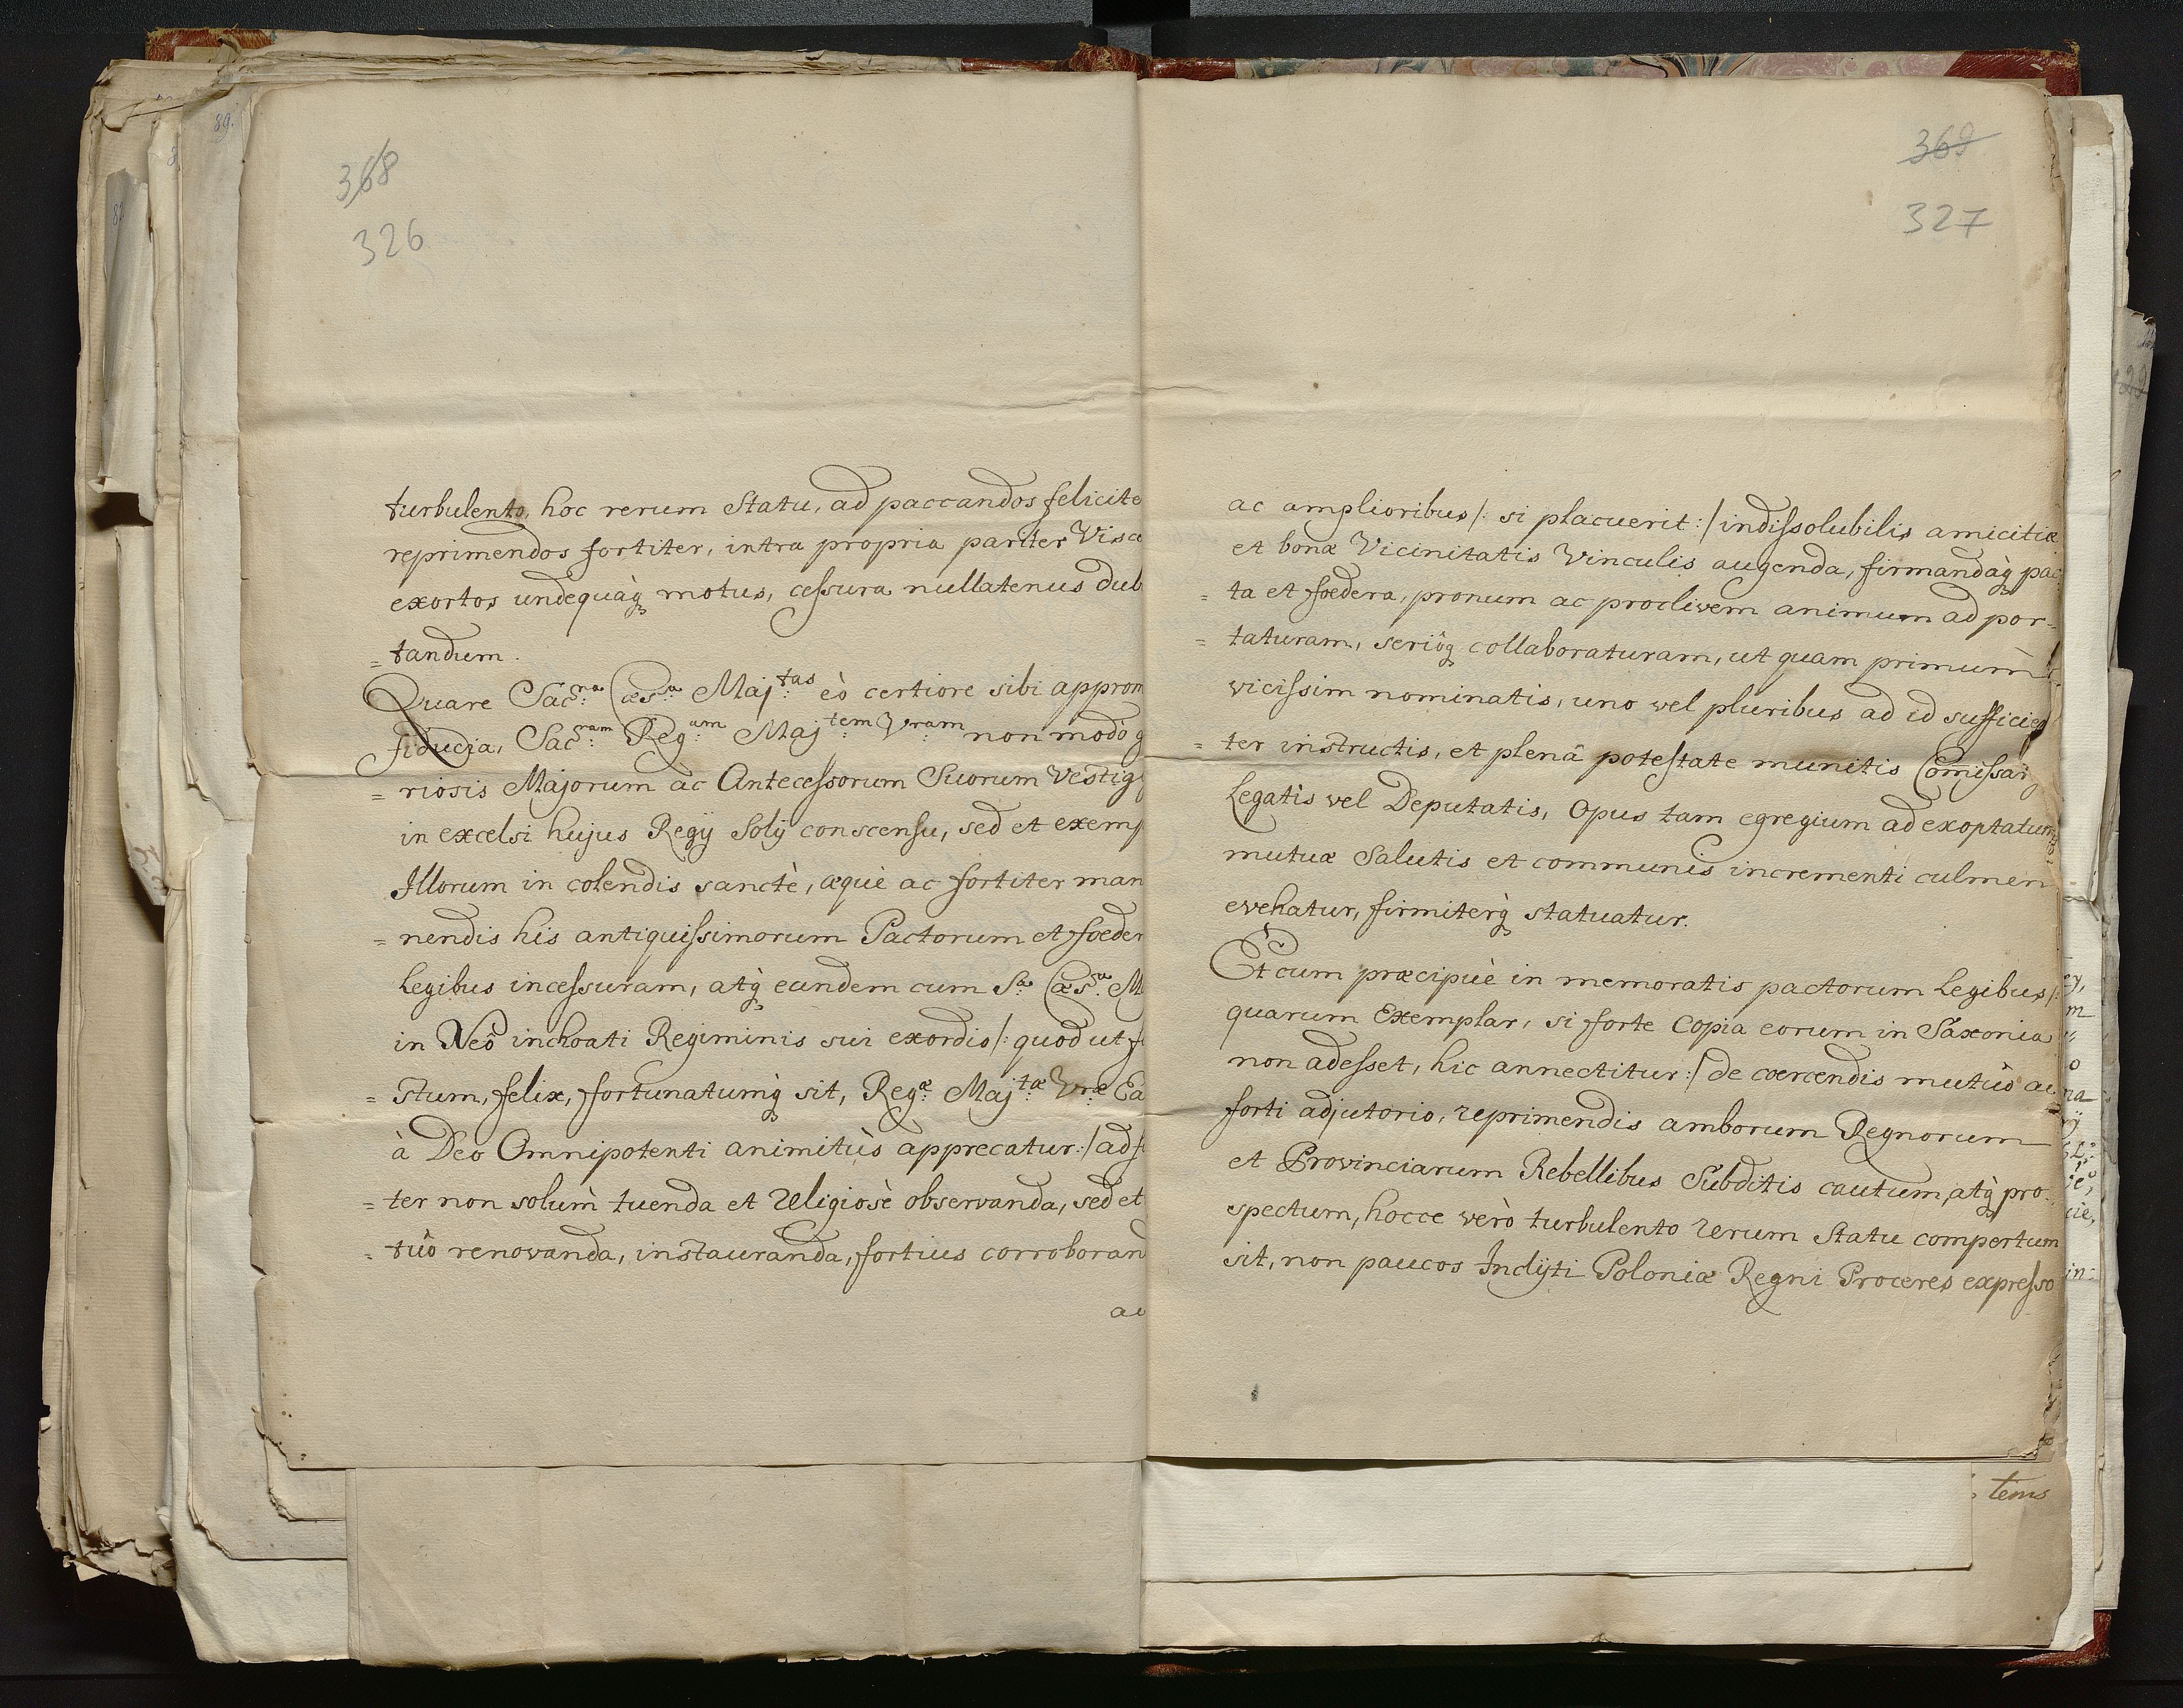 368
326
turbulento, hoc rerum Statu, ad paccandos felicite
reprimendos fortiter, intra propria pariter Visce
exortos undequàq₃ motus, cessura nullatenus dub
= tandum.
Quare Sac:ra Cæs:a Maj:tas èò certiore sibi approm
fiducia, Sac:ram Reg:am Maj:tem Vram non modò g
= riosis Majorum ac Antecessorum Suorum Vestig
in excelsi hujus Regÿ Solÿ conscensu, sed et exemp
Illorum in colendis sanctè, æquè ac fortiter man
= nendis his antiquissimorum Pactorum et foeder
Legibus incessuram, atq₃ eundem cum S:a Cæs:a M
in Neò inchoati Regiminis sui exordio /: quod ut f
= stum, felix, fortunatumq₃ sit, Reg:æ Maj:tæ Vræ Ea
à Deo Omnipotenti animitùs apprecatur :/ ad f
= ter non solùm tuenda et religiosè observanda, sed et
= tùò renovanda, instauranda, fortius corroboran
ac
369
327
ac amplioribus /: si placuerit :/ indissolubilis amicitiæ
et bonæ Vicinitatis Vinculis augenda, firmandàq₃ pac
= ta et foedera, pronum ac proclivem animum ad por=
= taturam, seriòq₃ collaboraturam, ut quam primùm
vicissim nominatis, uno vel pluribus ad id sufficien
= ter instructis, et plenâ potestate munitis Com̄issarÿ
Legatis vel Deputatis, Opus tam egregium ad exoptatum
mutuæ Salutis et communis incrementi culmen
evehatur, firmiterq₃ statuatur.
Et cum præcipuè in memoratis pactorum Legibus /:
quarum Exemplar, si forte Copia eorum in Saxonia
non adesset, hic annectitur :/ de coercendis mutùò ac
forti adjutorio, reprimendis amborum Regnorum
et Provinciarum Rebellibus Subditis cautum, atq₃ pro=
spectum, hocce verò turbulento rerum Statu compertum
sit, non paucos Inclÿti Poloniæ Regni Proceres expresso
tems